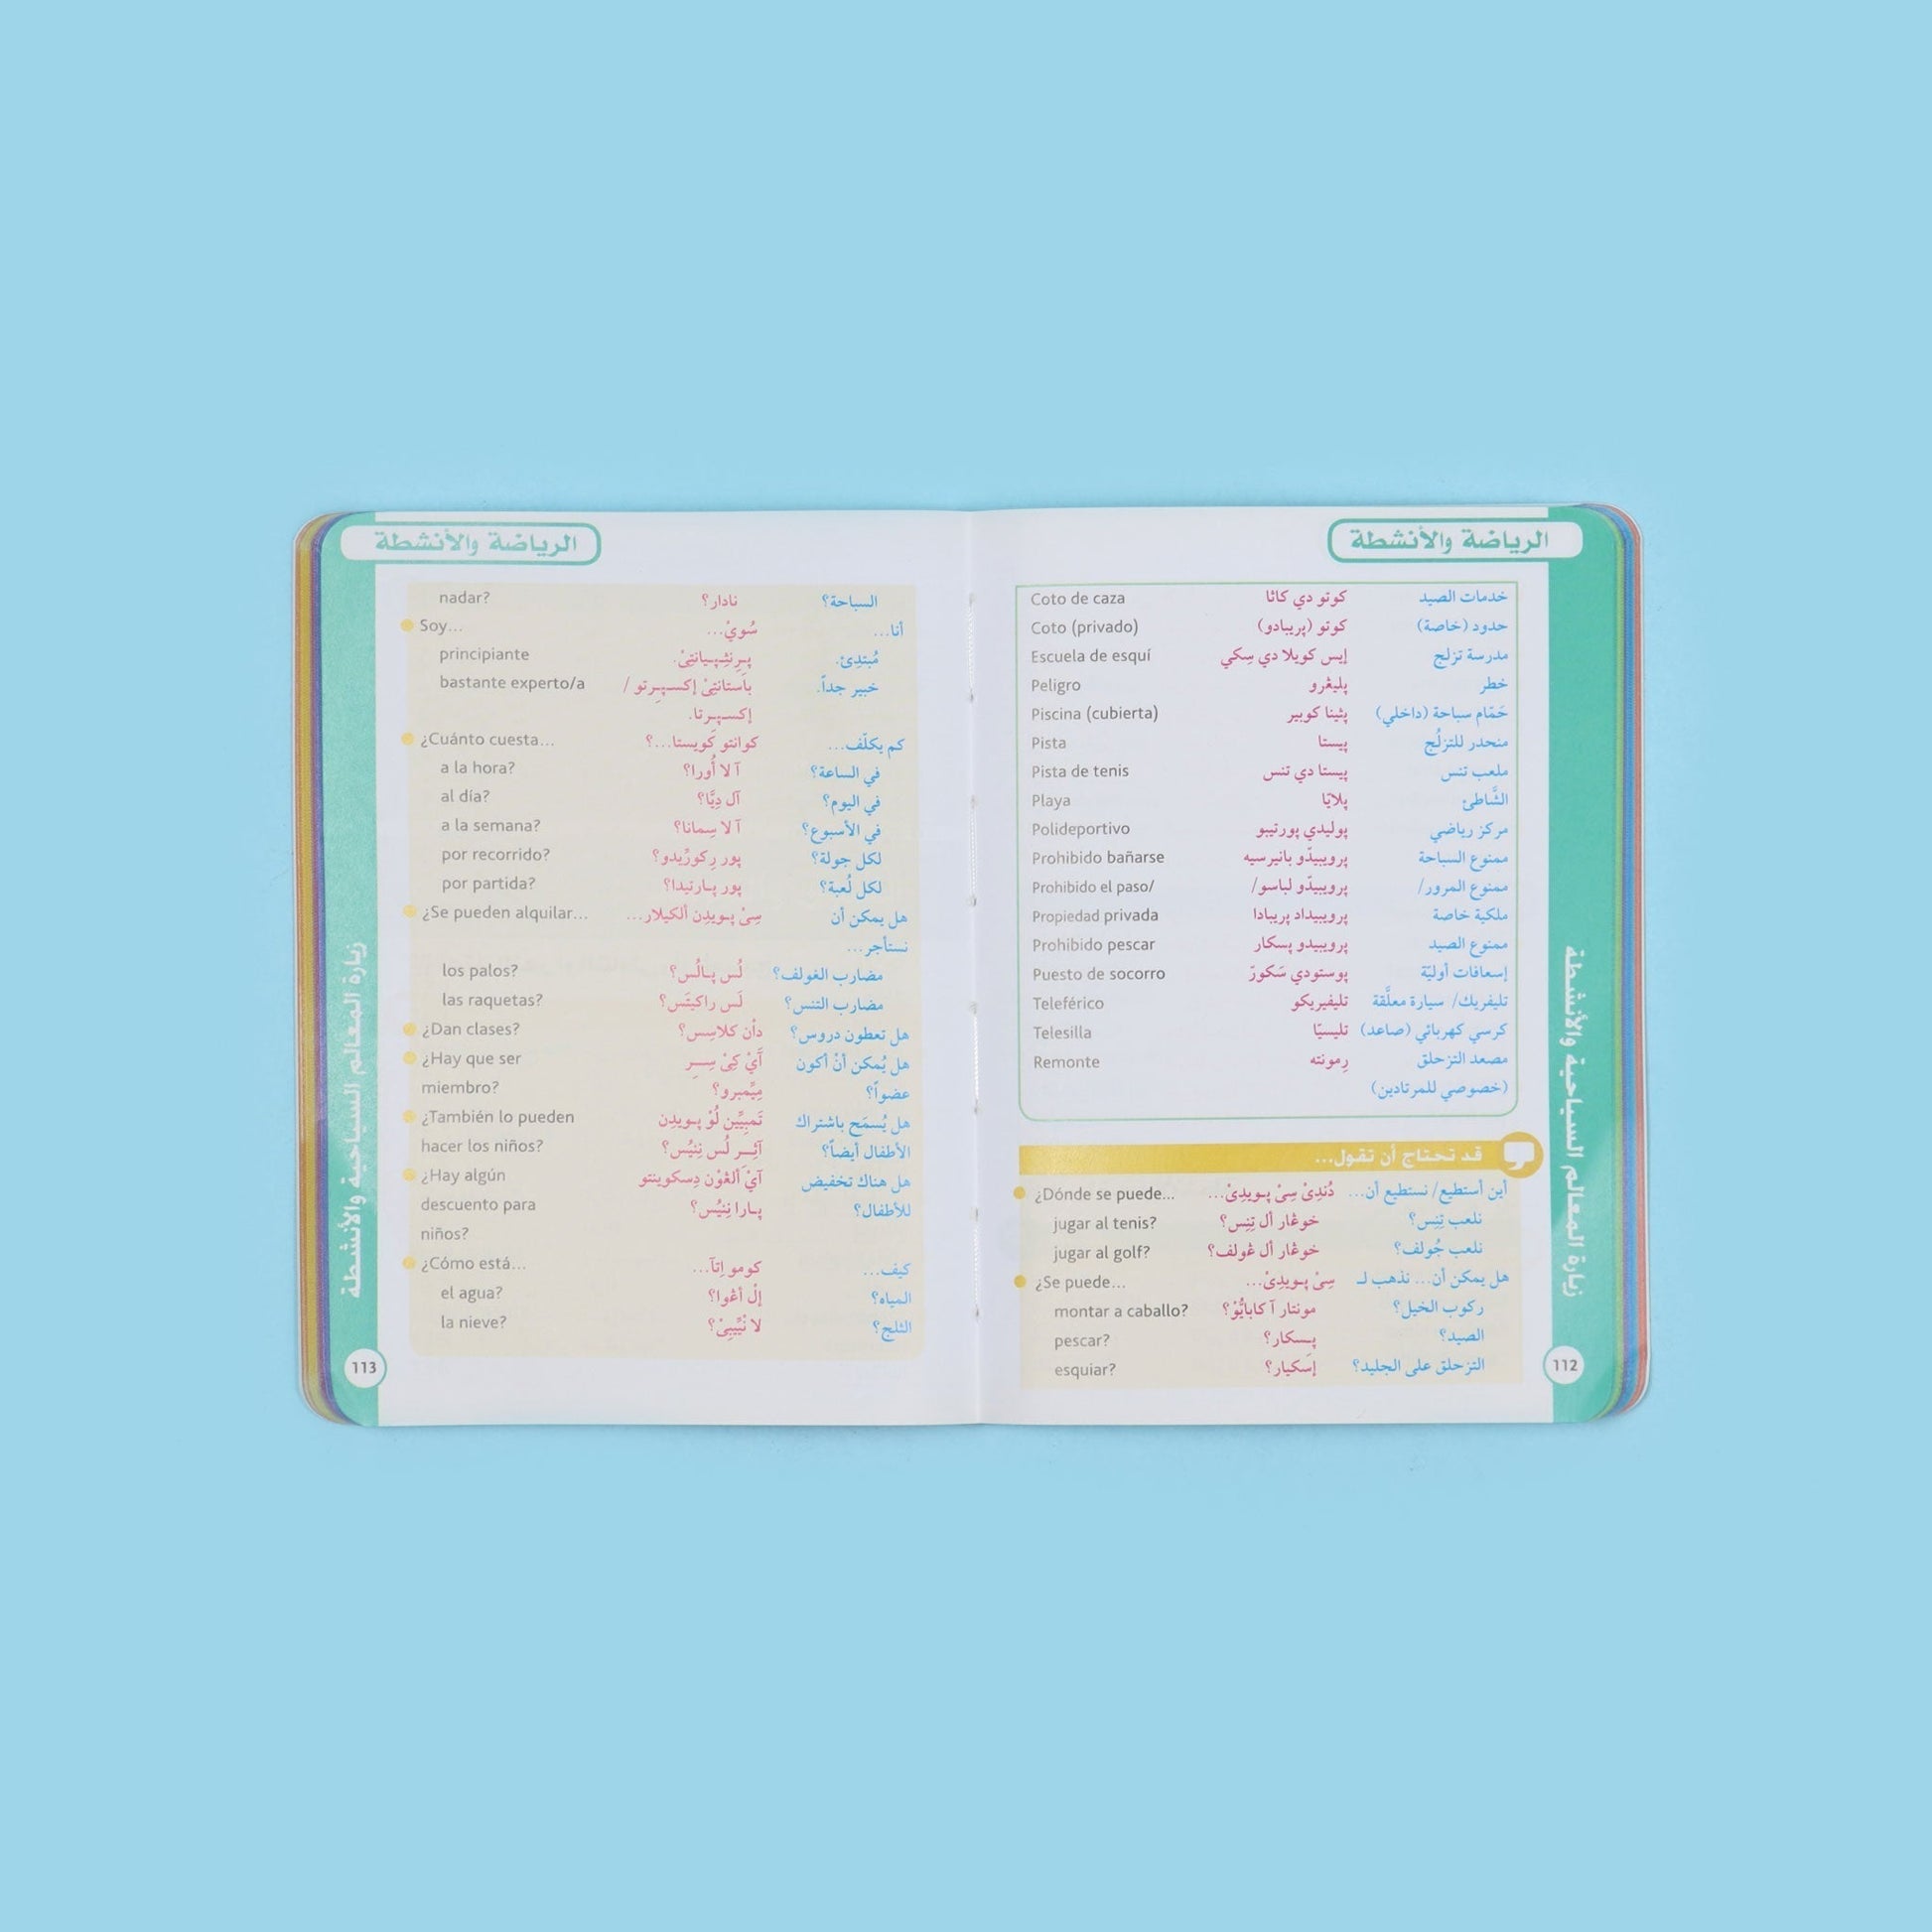 الرياضة والأنشطة
خدمات الصيد كوتو دي كاثا Coto de caza
حدود (خاصة) كوتو (پريبادو) Coto (privado)
مدرسة تزلج إيس كويلا دي سِكي Escuela de esquí
خطر پليڠرو Peligro
حَمّام سباحة (داخلي) پثينا كوبير Piscina (cubierta)
منحدر للتزلُج پيستا Pista
ملعب تنس پيستا دي تنس Pista de tenis
الشَّاطئ پلايّا Playa
مركز رياضي پوليدي پورتيبو Polideportivo
ممنوع السباحة پروبيبدّو بانيرسيه Prohibido bañarse
ممنوع المرور/ پروبيبدّو لباسو/ Prohibido el paso/
ملكية خاصة پروبيبداد پريبادا Propiedad privada
ممنوع الصيد پروبيبدو پسكار Prohibido pescar
إسعافات أوليّة پوستودي سَكورّ Puesto de socorro
تليفريك/ سيارة معلَّقة تليفيريكو Teleférico
كرسي كهربائي (صاعد) تليسيّا Telesilla
مصعد التزحلق رِمونته Remonte
(خصوصي للمرتادين)
قد تحتاج أن تقول...
أين أستطيع/ نستطيع أن... دُندِىْ سِىْ پـويدِىْ... ¿Dónde se puede...
نلعب تِنِس؟ خوڠار أل تِنِس؟ jugar al tenis?
نلعب جُولف؟ خوڠار أل ڠولف؟ jugar al golf?
هل يمكن أن... نذهب لـ سِىْ پـويدِىْ... ¿Se puede...
ركوب الخيل؟ مونتار آ كابايُّوْ؟ montar a caballo?
الصيد؟ پـسكار؟ pescar?
التزحلق على الجليد؟ إسَكيار؟ esquiar?
زيارة المعالم السياحية والأنشطة
112
الرياضة والأنشطة
السباحة؟ نادار؟ nadar?
أنا... سُويْ... Soy...
مُبتدِئ. principiante
خبير جداً. باستانتِىْ إكسـپـِرتو / bastante experto/a
إكسـپـِرتا.
كم يكلّف... كوانتو كَويستا...؟ ¿Cuánto cuesta...
في الساعة؟ آ لا أُورا؟ a la hora?
في اليوم؟ آل دِيَّا؟ al día?
في الأسبوع؟ آ لا سِمانا؟ a la semana?
لكل جولة؟ پور رِكورِّيدو؟ por recorrido?
لكل لُعبة؟ پور پـارتيدا؟ por partida?
هل يمكن أن سِىْ پـويدِن ألكيلار... ¿Se pueden alquilar...
نستأجر...
مضارب الغولف؟ لُس پـالُس؟ los palos?
مضارب التنس؟ لَس راكيتَس؟ las raquetas?
هل تعطون دروس؟ دأن كلاسِس؟ ¿Dan clases?
هل يُمكن أنْ أكون آيْ كِىْ سِـــر ¿Hay que ser
عضواً؟ مِيِّمبرو؟ miembro?
هل يُسمَح باشتراك تَمبِيِّين لُوْ پـويدِن ¿También lo pueden
الأطفال أيضاً؟ آثِـــر لُس نِنيُس؟ hacer los niños?
هل هناك تخفيض آيْ ألڠوْن دِسكوينتو ¿Hay algún
للأطفال؟ پـارا نِنيُس؟ descuento para
niños?
كيف... كومو إتآ... ¿Cómo está...
المياه؟ إلْ أڠوا؟ el agua?
الثلج؟ لا نْيِّيبِىْ؟ la nieve?
زيارة المعالم السياحية والأنشطة
113